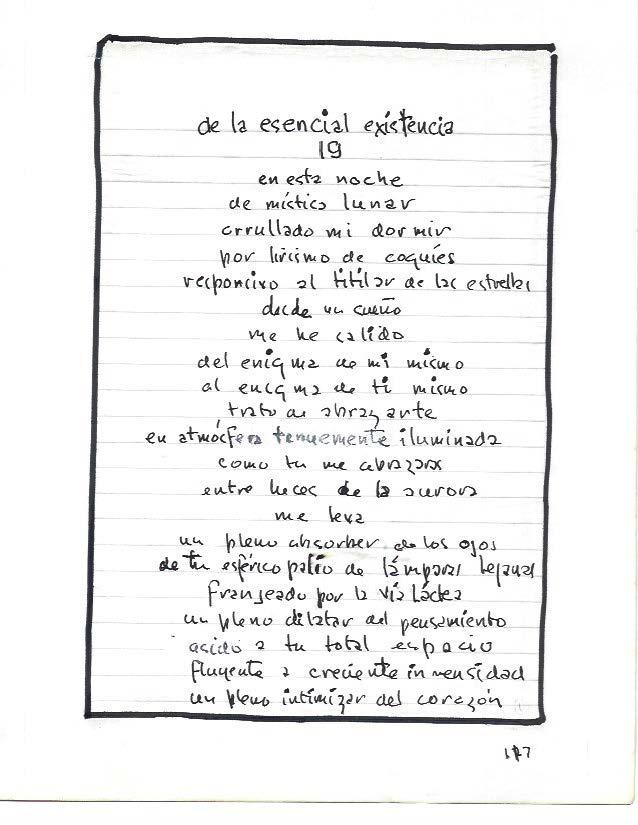 de la esencial existencia
19
en esta noche
de místico lunar
arrullado mi dormir
por lirismo de coquíes
responsivo al titilar de las estrellas
desde un sueño
me he salido
del enigma de mi mismo
al enigma de ti mismo
trato de abrazarte
en atmósfera tenuemente iluminada
como tu me abrazas
entre luces de la aurora
me leva
un pleno absorber de los ojos
de tu esférico palio de lámparas lejanas
franjeado por la vía Láctea
un pleno dilatar del pensamiento
asido a tu total espacio
fluyente a creciente inmensidad
un pleno intimizar del corazón